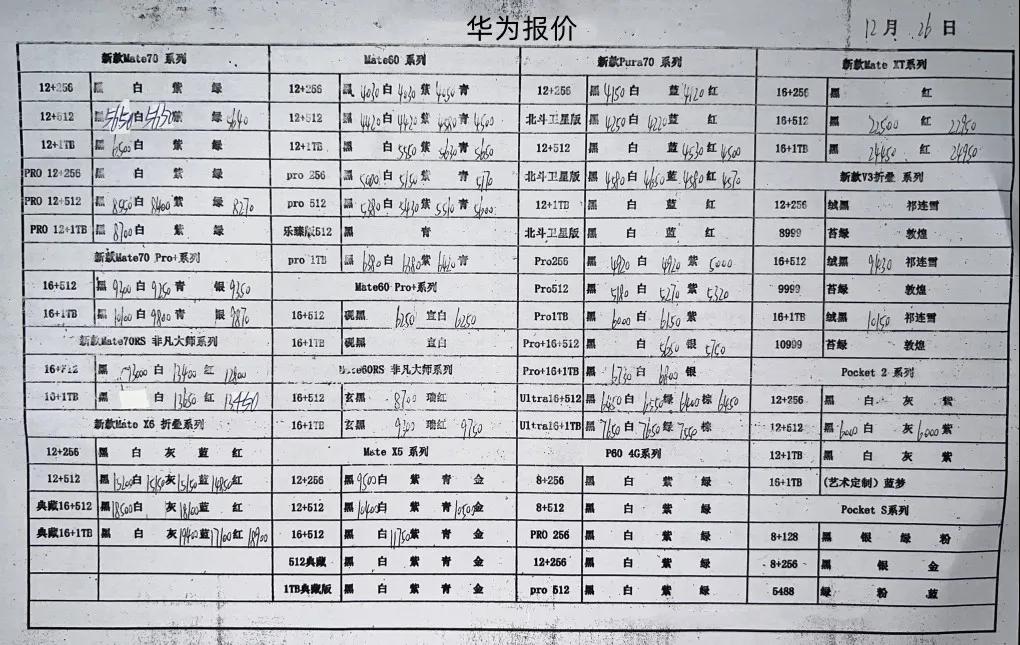 华为报价
12月 26日
新款Mate70 系列
12+256 黑 白 紫 绿
12+512 黑 5650 白 5750 紫 绿 5640
12+1TB 黑 6500 白 紫 绿
PRO 12+256 黑 白 紫 绿
PRO 12+512 黑 8950 白 8400 紫 绿 8270
PRO 12+1TB 黑 8700 白 紫 绿
新款Mate70 Pro+系列
16+512 黑 9200 白 9250 青 银 9350
16+1TB 黑 10100 白 9800 青 银 9870
新款Mate70RS 非凡大师系列
16+512 黑 13000 白 13400 红 12800
16+1TB 黑 白 13650 红 13450
新款Mate X6 折叠系列
12+256 黑 白 灰 蓝 红
12+512 黑 15200 白 15150 灰 15150 蓝 14850 红
典藏16+512 黑 18500 白 灰 18100 蓝 红
典藏16+1TB 黑 白 灰 19400 蓝 17100 红 18900
Mate60 系列
12+256 黑 4020 白 4030 紫 4050 青
12+512 黑 4420 白 4420 紫 4580 青 4500
12+1TB 黑 白 5550 紫 5630 青 5650
pro 256 黑 5080 白 5150 紫 青 5170
pro 512 黑 5380 白 5430 紫 5510 青 5600
乐臻版512 黑 青
pro 1TB 黑 6380 白 6380 紫 6420 青
Mate60 Pro+系列
16+512 砚黑 6250 宣白 6250
16+1TB 砚黑 宣白
Mate60RS 非凡大师系列
16+512 玄黑 8700 瑞红
16+1TB 玄黑 9300 瑞红 9750
Mate X5 系列
12+256 黑 9500 白 紫 青 金
12+512 黑 10400 白 紫 青 10500 金
16+512 黑 白 11750 紫 青 金
512典藏 黑 白 紫 青 金
1TB典藏版 黑 白 紫 青 金
新款Pura70 系列
12+256 黑 4150 白 蓝 4120 红
北斗卫星版 黑 4250 白 4220 蓝 红
12+512 黑 白 蓝 4530 红 4500
北斗卫星版 黑 4580 白 4650 蓝 4580 红 4570
12+1TB 黑 白 蓝 红
北斗卫星版 黑 白 蓝 红
Pro256 黑 4920 白 4920 紫 5000
Pro512 黑 5180 白 5270 紫 5320
Pro1TB 黑 6000 白 6150 紫
Pro+16+512 黑 白 5650 银 5750
Pro+16+1TB 黑 6750 白 6800 银
Ultra16+512 黑 6450 白 6550 绿 6400 棕 6450
Ultra16+1TB 黑 7650 白 7650 绿 7550 棕
P60 4G系列
8+256 黑 白 紫 绿
8+512 黑 白 紫 绿
PRO 256 黑 白 紫 绿
12+256 黑 白 紫 绿
pro 512 黑 白 紫 绿
新款Mate XT系列
16+256 黑 红
16+512 黑 22500 红 22950
16+1TB 黑 24450 红 24950
新款V3折叠 系列
12+256 绒黑 祁连雪
8999 苔绿 敦煌
16+512 绒黑 9430 祁连雪
9999 苔绿 敦煌
16+1TB 绒黑 10150 祁连雪
10999 苔绿 敦煌
Pocket 2 系列
12+256 黑 白 灰 紫
12+512 黑 6000 白 灰 6000 紫
12+1TB 黑 白 灰 紫
16+1TB (艺术定制) 蓝梦
Pocket S系列
8+128 黑 银 绿 粉
8+256 黑 银 金
5488 绿 粉 蓝